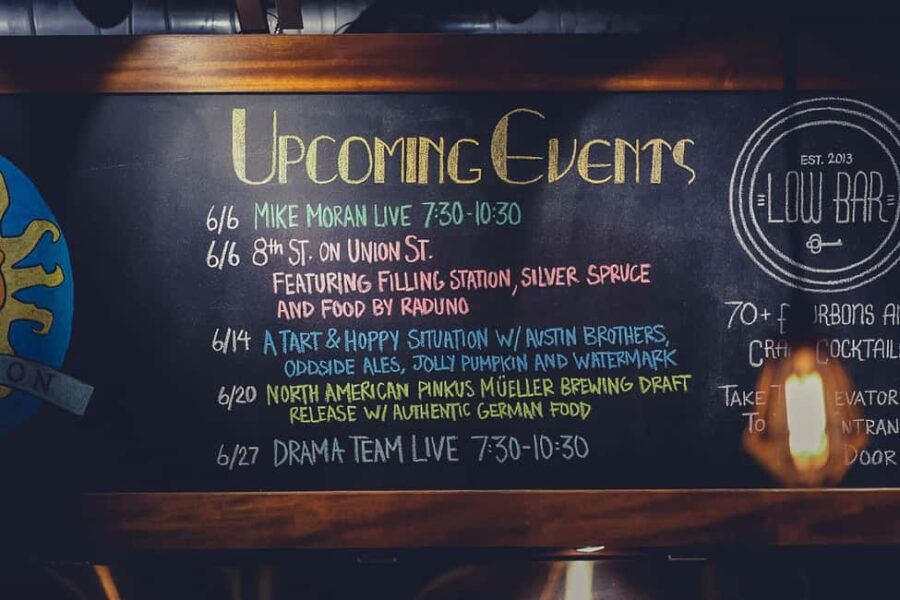 UPCOMING EVENTS
6/6 MIKE MORAN LIVE 7:30-10:30
6/6 8th ST. ON UNION ST.
FEATURING FILLING STATION, SILVER SPRUCE
AND FOOD BY RADUNO
6/14 A TART & HOPPY SITUATION W/ AUSTIN BROTHERS,
ODDSIDE ALES, JOLLY PUMPKIN AND WATERMARK
6/20 NORTH AMERICAN PINKUS MÜELLER BREWING DRAFT
RELEASE W/ AUTHENTIC GERMAN FOOD
6/27 DRAMA TEAM LIVE 7:30-10:30
ON
EST. 2013
LOW BAR
70+
COCKTAIL
TAKE
TO
DOOR